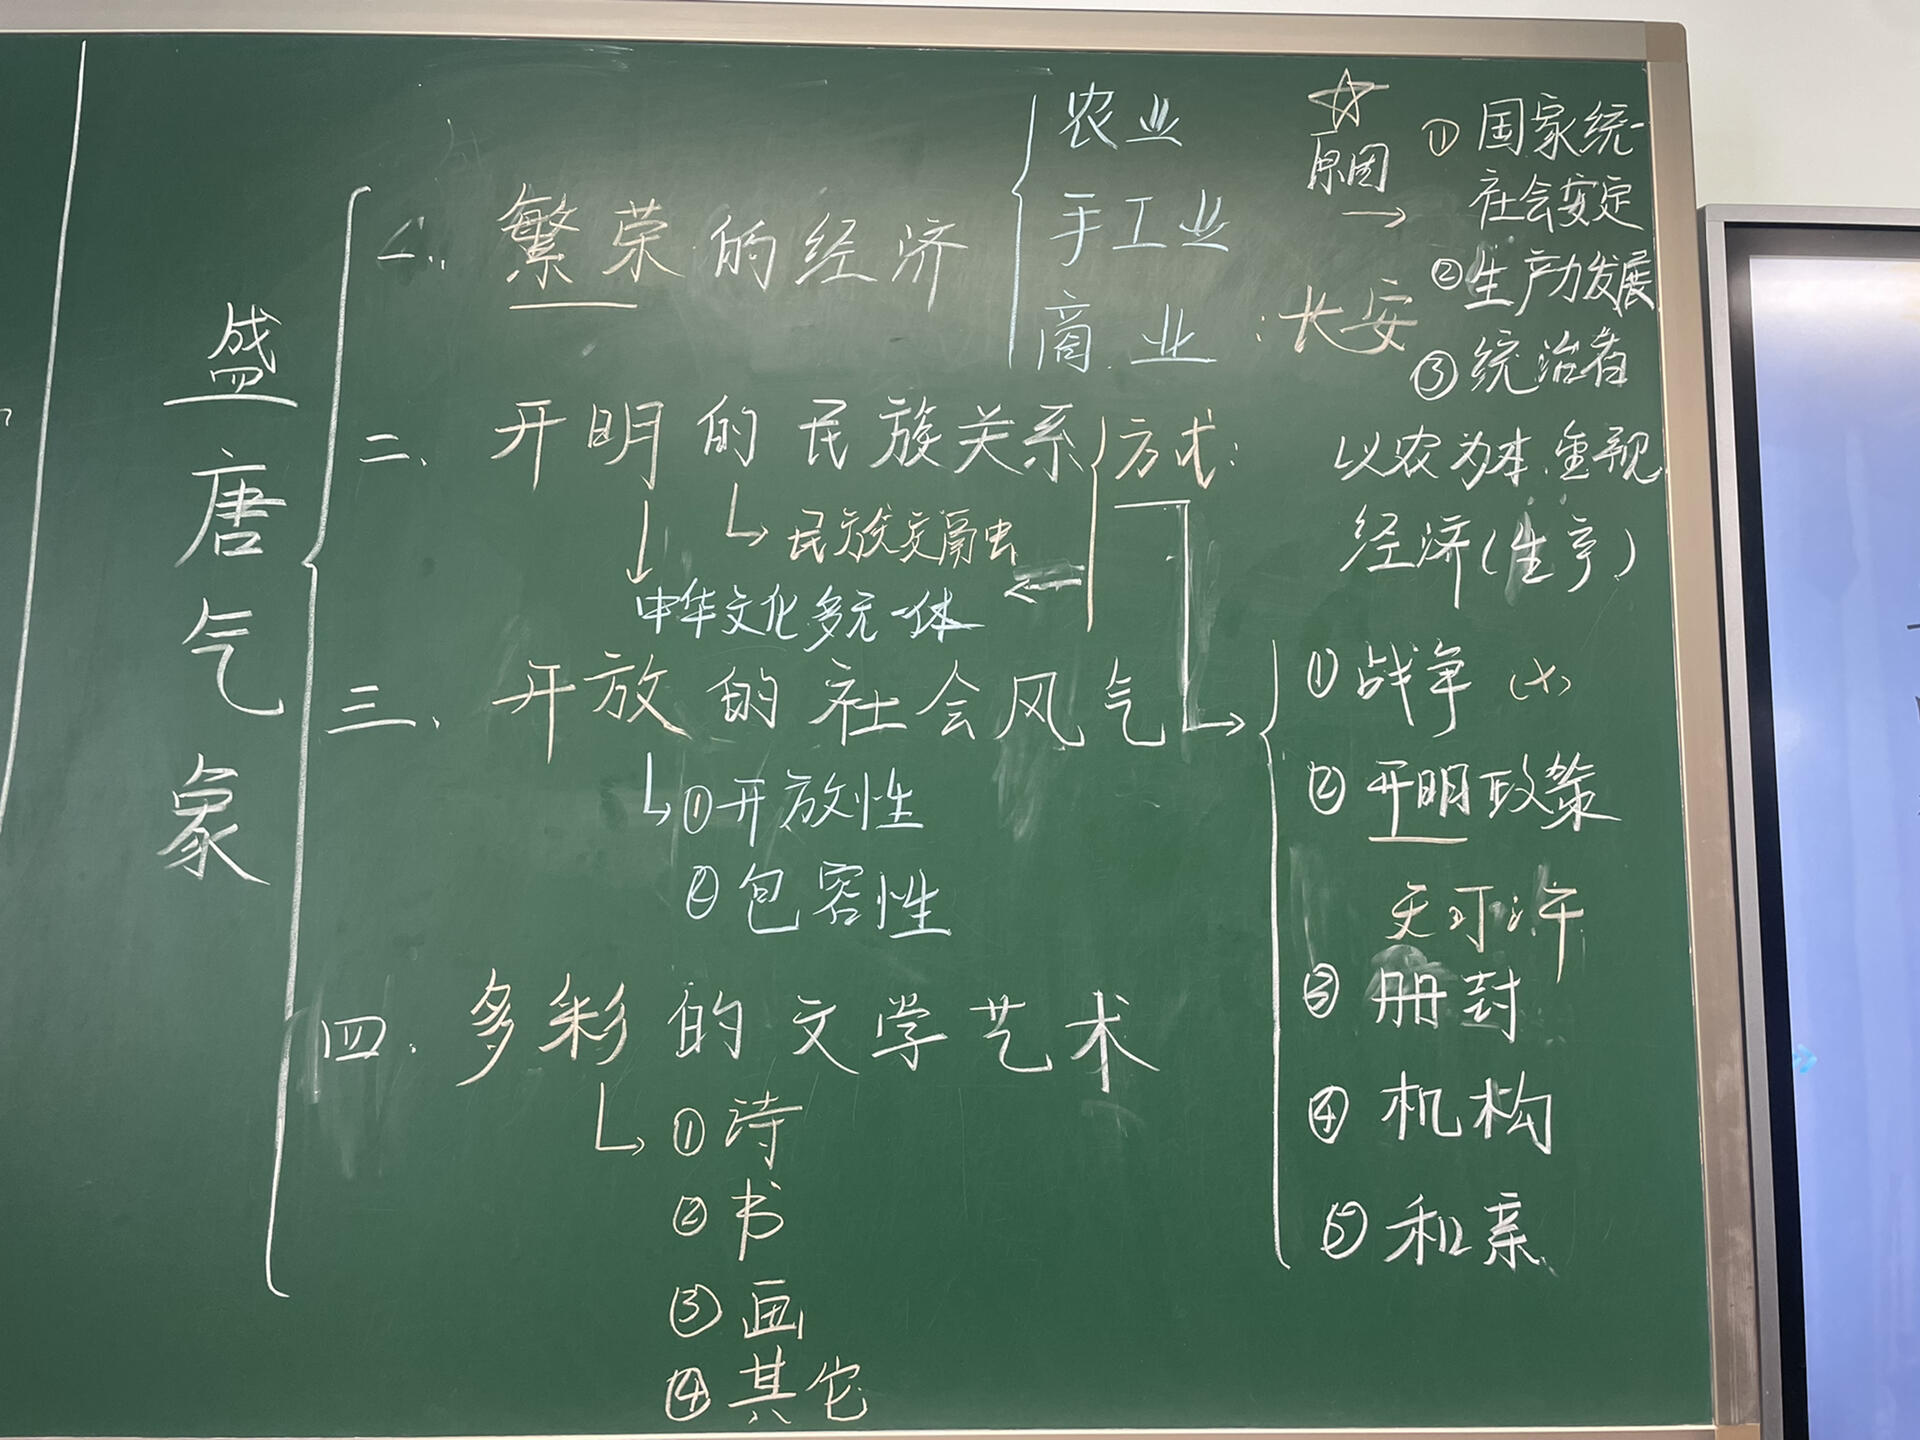 盛唐气象
一、繁荣的经济
农业
手工业
商业：长安
☆
原因
→
① 国家统一
社会安定
② 生产力发展
③ 统治者
以农为本.重视
经济(生产)
二、开明的民族关系
方式：
↳民族交融
中华文化多元一体
① 战争 (×)
② 开明政策
天可汗
③ 册封
④ 机构
⑤ 和亲
三、开放的社会风气
↳① 开放性
② 包容性
四.多彩的文学艺术
↳① 诗
② 书
③ 画
④ 其它